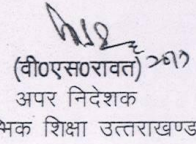 (वी0एस0रावत)
अपर निदेशक
भिक शिक्षा उत्तराखण्ड